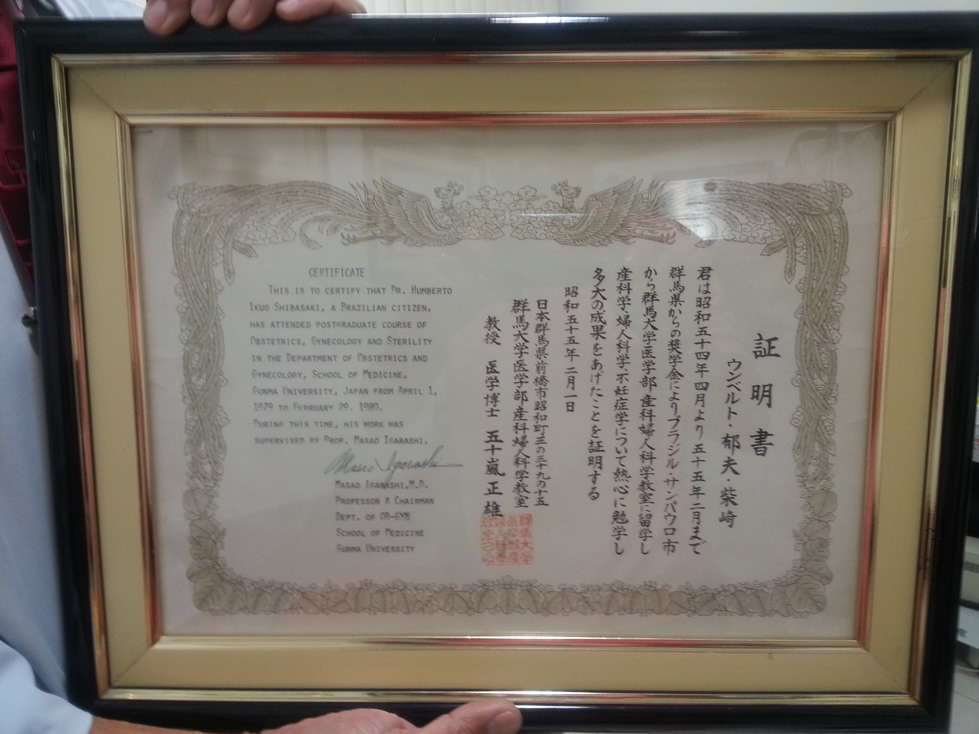 CERTIFICATE
THIS IS TO CERTIFY THAT DR. HUMBERTO
IKUO SHIBASAKI, A BRAZILIAN CITIZEN,
HAS ATTENDED POSTGRADUATE COURSE OF
OBSTETRICS, GYNECOLOGY AND STERILITY
IN THE DEPARTMENT OF OBSTETRICS AND
GYNECOLOGY, SCHOOL OF MEDICINE,
GUNMA UNIVERSITY, JAPAN FROM APRIL 1,
1979 TO FEBRUARY 29, 1980.
DURING THIS TIME, HIS WORK WAS
SUPERVISED BY PROF. MASAO IGARASHI.
Masao Igarashi
MASAO IGARASHI, M.D.
PROFESSOR & CHAIRMAN
DEPT. OF OB-GYN
SCHOOL OF MEDICINE
GUNMA UNIVERSITY
証明書
ウンベルト・郁夫・柴崎
君は昭和五十四年四月より五十五年二月まで
群馬県からの奨学金によりブラジル・サンパウロ市
から群馬大学医学部産科婦人科学教室に留学し
産科学・婦人科学・不妊症学について熱心に勉学し
多大の成果をあげたことを証明する
昭和五十五年二月一日
日本群馬県前橋市昭和町三の三十九の十五
群馬大学医学部産科婦人科学教室
教授 医学博士 五十嵐正雄